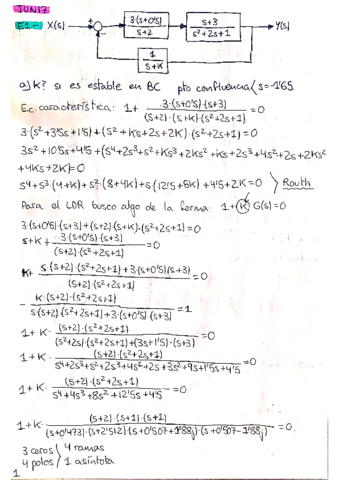 JUN17
E1- X(s) 3(s+0'5) s+2 s+3 s²+2s+1 Y(s)
1
s+K
a) K? si es estable en BC pto confluencia (s=-1'65
Ec. característica: 1+ 3·(s+0'5)·(s+3) / (s+2)·(s+K)·(s²+2s+1) =0
3·(s²+3'5s+1'5)+(s²+Ks+2s+2K)·(s²+2s+1)=0
3s²+10'5s+4'5+(s⁴+2s³+s²+Ks³+2Ks²+Ks+2s³+4s²+2s+2Ks²
+4Ks+2K)=0
s⁴+s³·(4+K)+s²·(8+4K)+s(12'5+5K)+4'5+2K=0 } Routh
Para el LDR busco algo de la forma: 1+(K)G(s)=0
3(s+0'5)·(s+3)+(s+2)·(s+K)·(s²+2s+1)=0
s+K+ 3·(s+0'5)·(s+3) / (s+2)·(s²+2s+1) =0
K+ s·(s+2)·(s²+2s+1)+3·(s+0'5)(s+3) / (s+2)·(s²+2s+1) =0
- K·(s+2)·(s²+2s+1) / s(s+2)(s²+2s+1)+3·(s+0'5)(s+3) =1
1+K· (s+2)·(s²+2s+1) / (s²+2s)·(s²+2s+1)+(3s+1'5)·(s+3) =0
1+K· (s+2)·(s²+2s+1) / s⁴+2s³+s²+2s³+4s²+2s+3s²+9s+1'5s+4'5 =0
1+K· (s+2)·(s²+2s+1) / s⁴+4s³+8s²+12'5s+4'5 =0
1+K· (s+2)·(s+1)·(s+1) / (s+0'473)·(s+2'512)·(s+0'507+1'88j)·(s+0'507-1'88j) =0
3 ceros 4 ramas
4 polos 1 asíntota
1